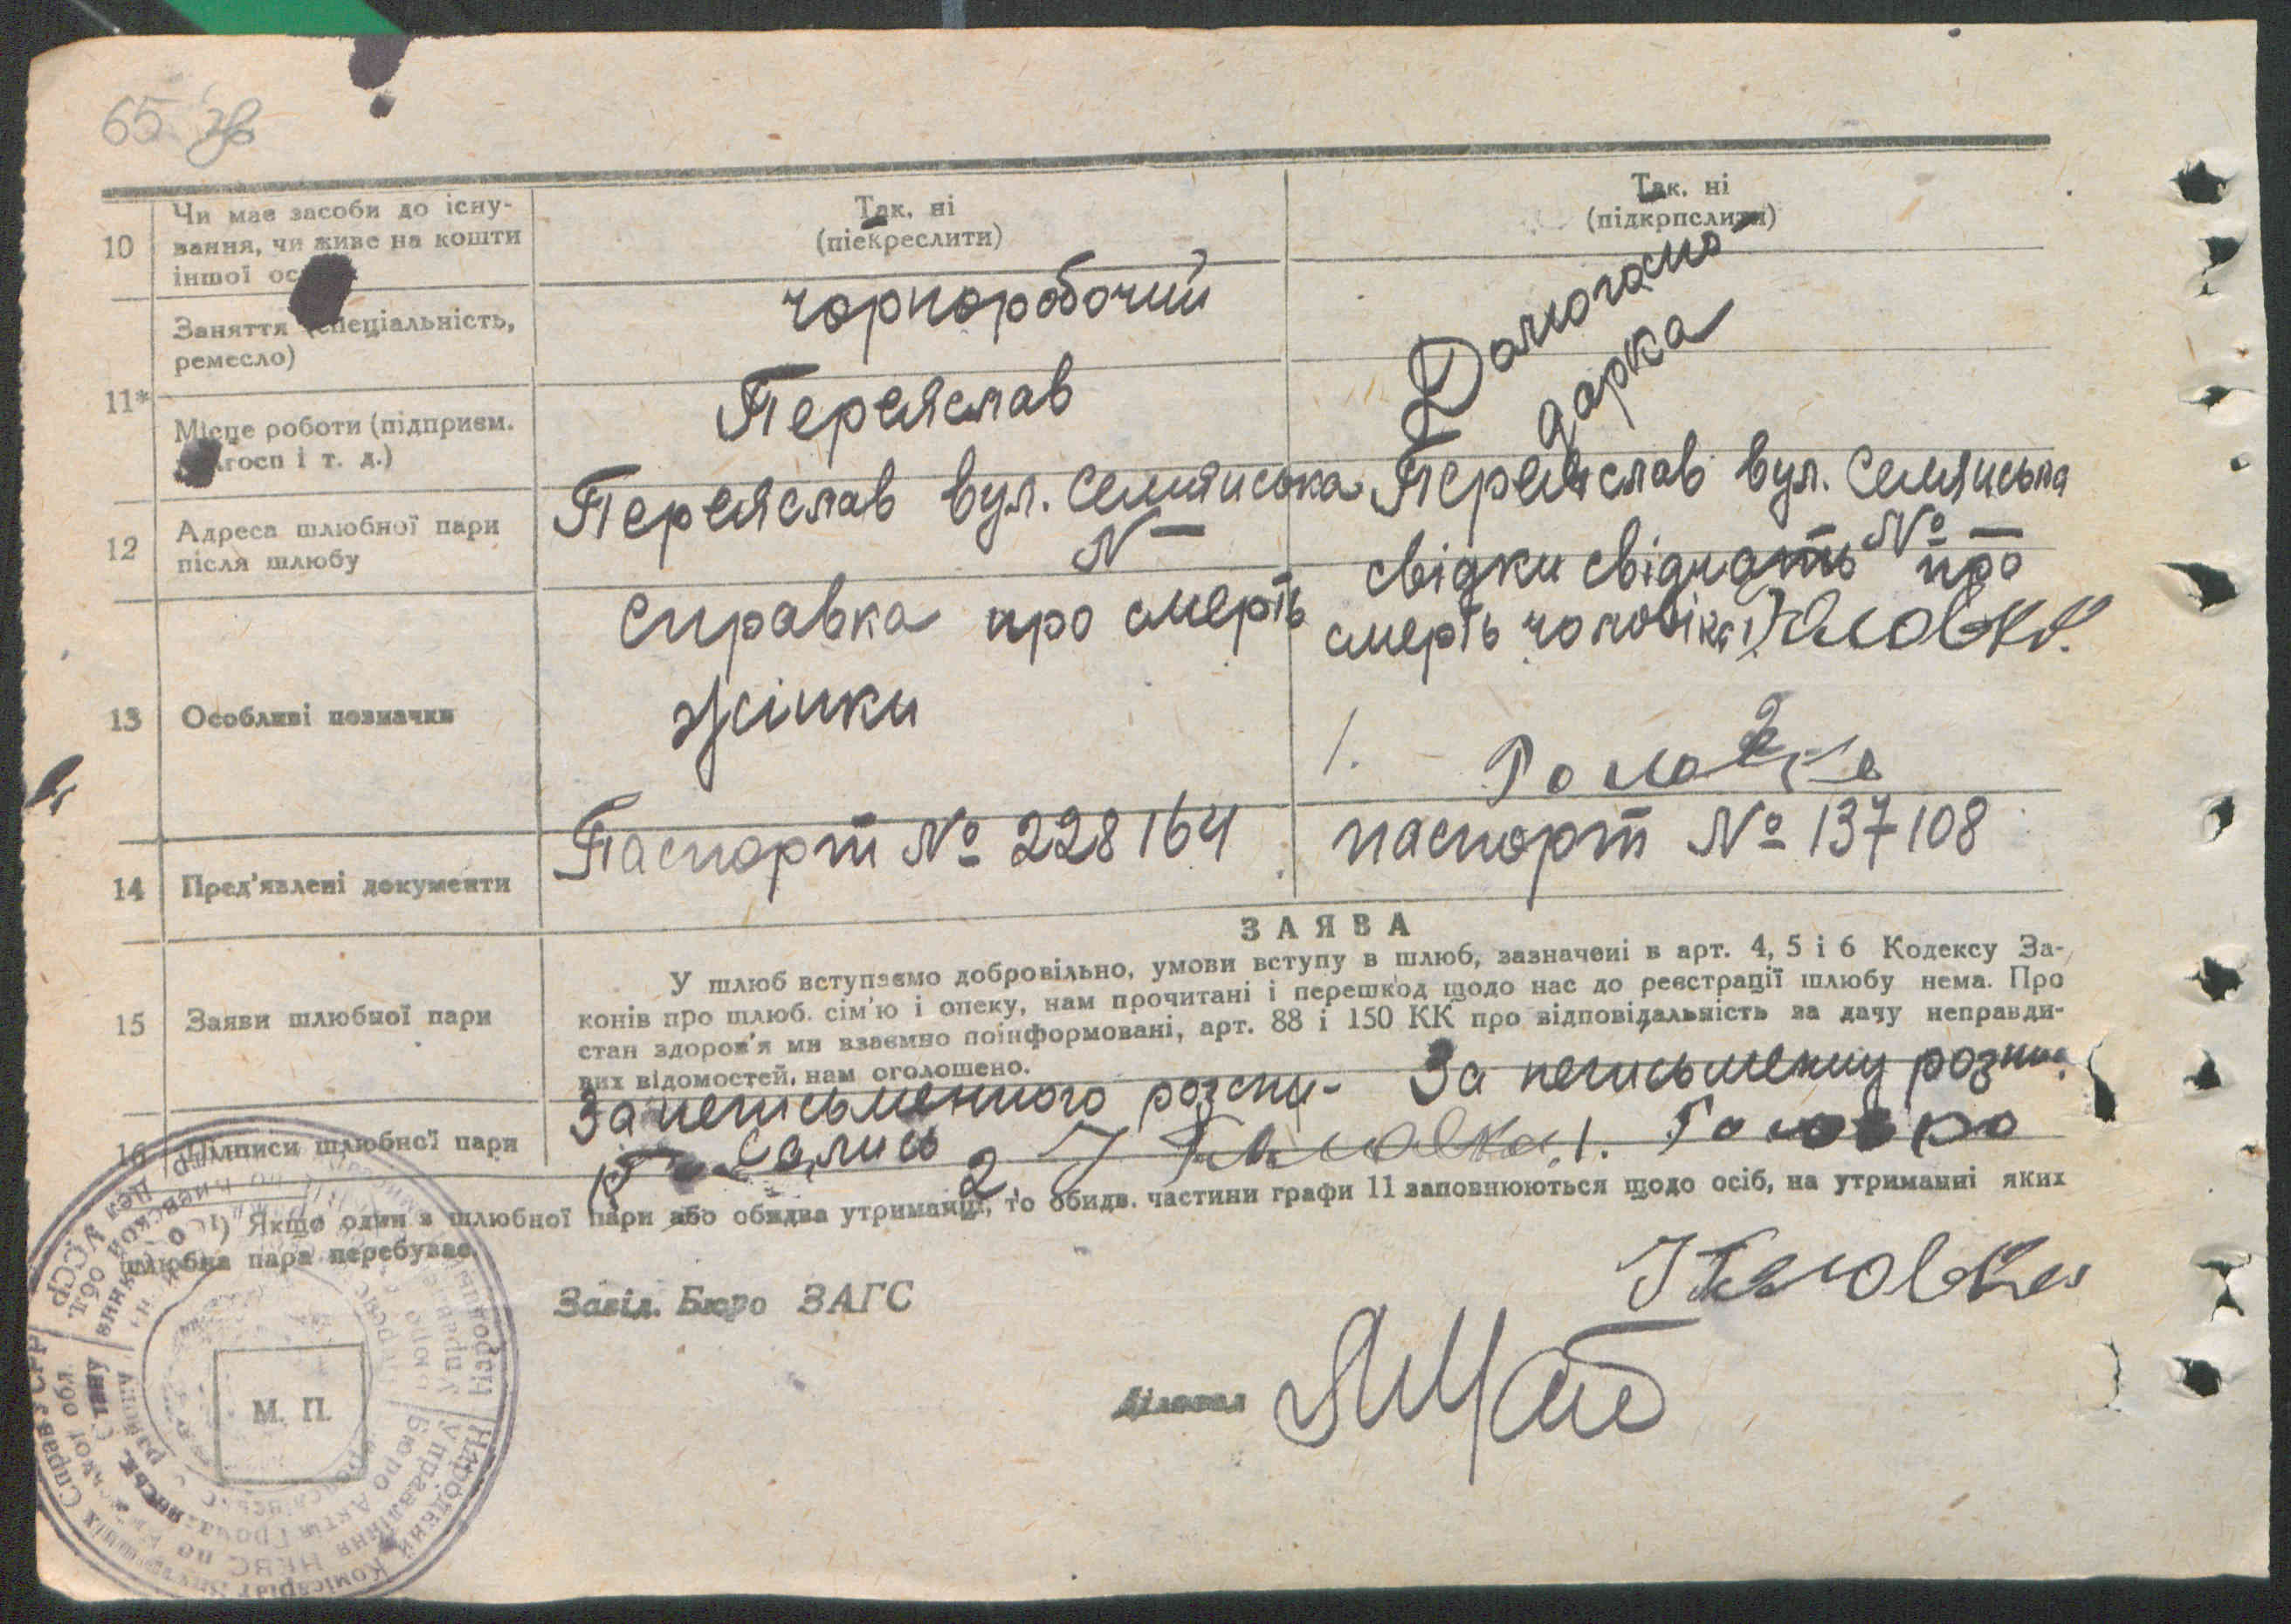 65 зв
10
Чи має засоби до існу-
вання, чи живе на кошти
іншої ос
Так, ні
(піекреслити)
Так, ні
(підкрпслити)
11*
Заняття (спеціальність,
ремесло)
чорноробочий
Домогоспо-
дарка
Місце роботи (підприєм.
госп і т. д.)
Переяслав
12
Адреса шлюбної пари
після шлюбу
Переяслав вул. Семяниська
N —
Переяслав вул. Семяниська
№ —
13
Особливі позначки
справка про смерть
жінки
свідки свідчать про
смерть чоловіка
1.
2
14
Пред'явлені документи
Паспорт № 228164
паспорт № 137108
15
Заяви шлюбної пари
ЗАЯВА
У шлюб вступаємо добровільно, умови вступу в шлюб, зазначені в арт. 4, 5 і 6 Кодексу За-
конів про шлюб. сім'ю і опеку, нам прочитані і перешкод щодо нас до реєстрації шлюбу нема. Про
стан здоров'я ми взаємно поінформовані, арт. 88 і 150 КК про відповідальність за дачу неправди-
вих відомостей, нам оголошено.
16
Підписи шлюбної пари
За неписьменного розпи-
сались
За неписьменну розпис.
2.
1. Головко
1) Якщо один з шлюбної пари або обидва утриманці, то обидв. частини графи 11 заповнюються щодо осіб, на утриманні яких
шлюбна пара перебуває.
Завід. Бюро ЗАГС
Діловод
М. П.